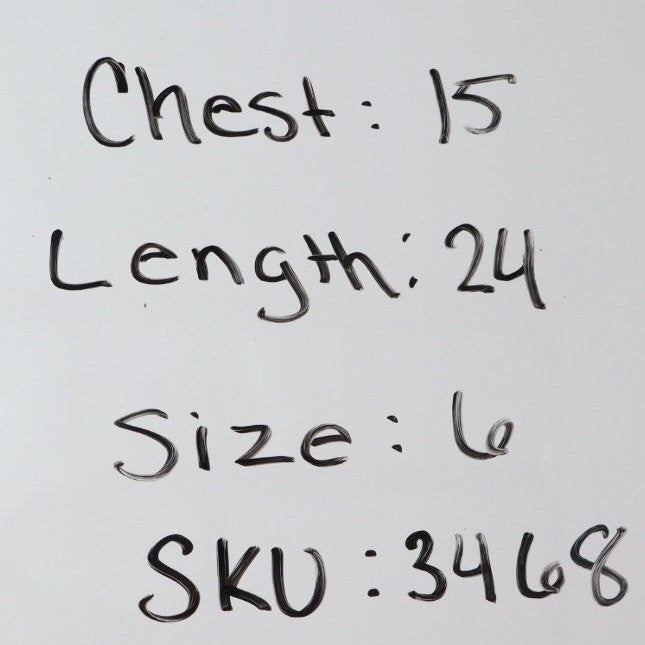 Chest: 15
Length: 24
Size: 6
SKU: 3468